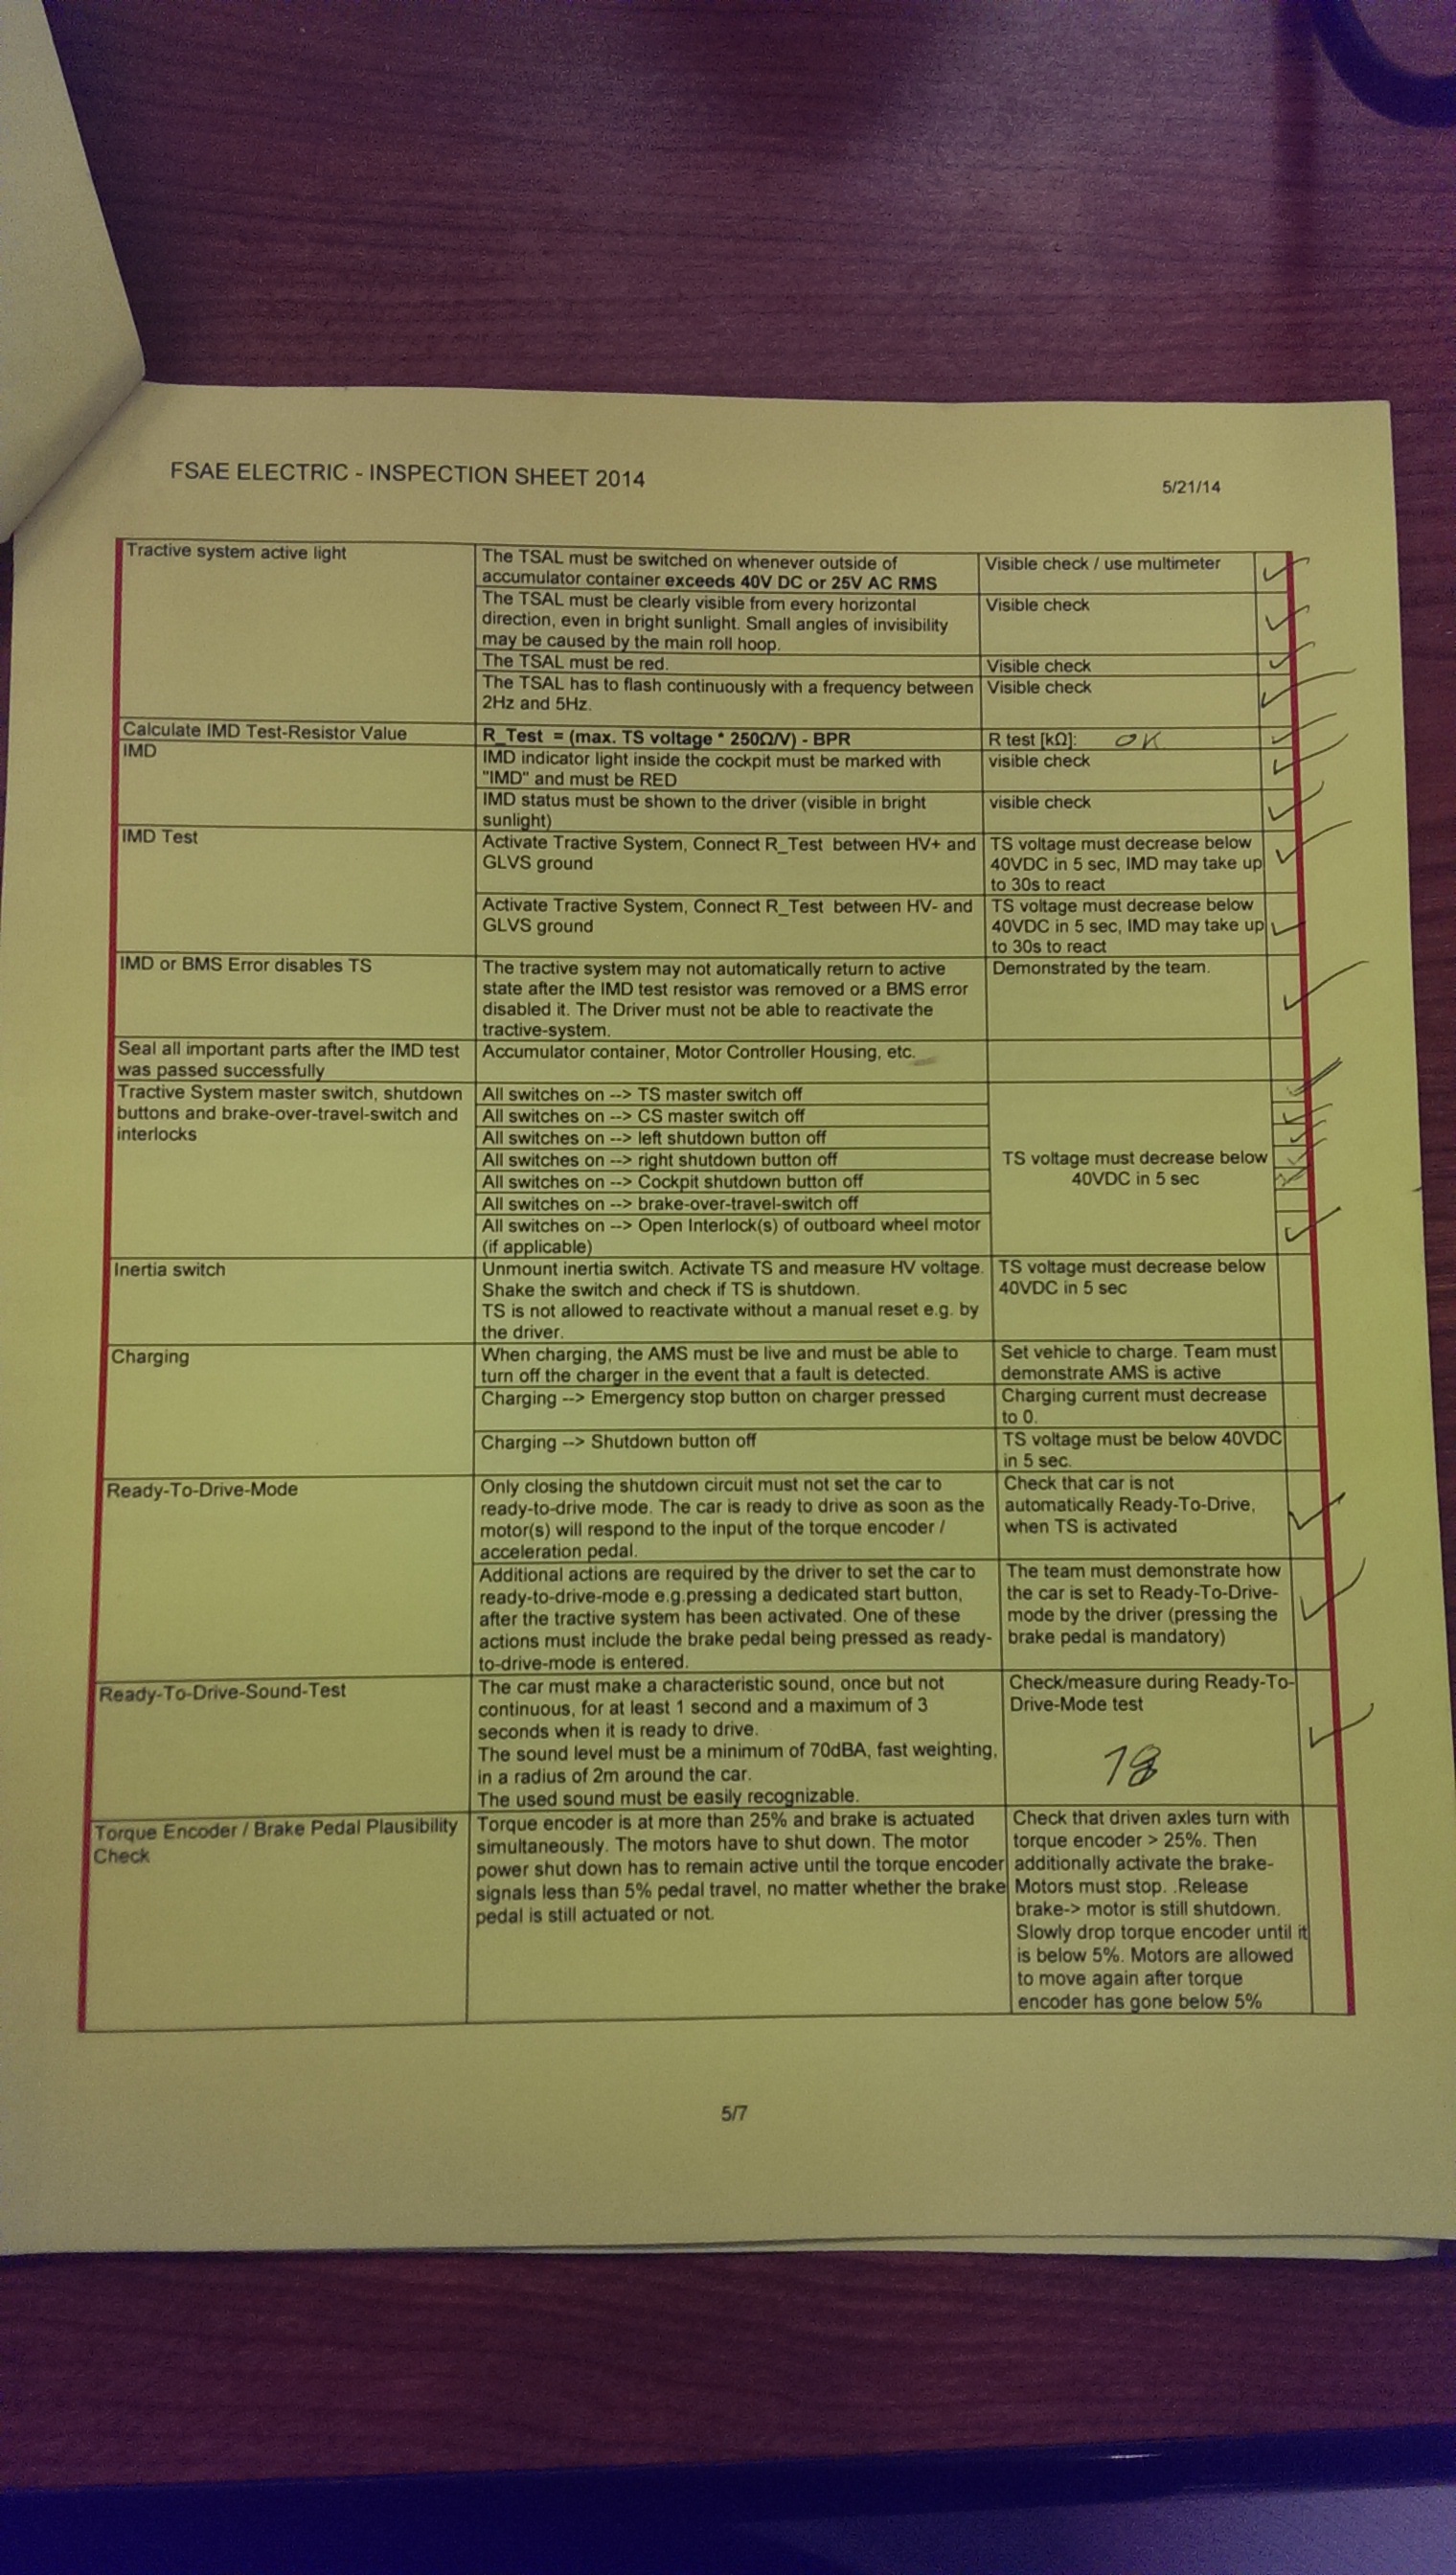 FSAE ELECTRIC - INSPECTION SHEET 2014
5/21/14
Tractive system active light
The TSAL must be switched on whenever outside of
accumulator container exceeds 40V DC or 25V AC RMS
Visible check / use multimeter
The TSAL must be clearly visible from every horizontal
direction, even in bright sunlight. Small angles of invisibility
may be caused by the main roll hoop.
Visible check
The TSAL must be red.
Visible check
The TSAL has to flash continuously with a frequency between
2Hz and 5Hz.
Visible check
Calculate IMD Test-Resistor Value
R_Test = (max. TS voltage * 250Ω/V) - BPR
R test [kΩ]: OK
IMD
IMD indicator light inside the cockpit must be marked with
"IMD" and must be RED
visible check
IMD status must be shown to the driver (visible in bright
sunlight)
visible check
IMD Test
Activate Tractive System, Connect R_Test between HV+ and
GLVS ground
TS voltage must decrease below
40VDC in 5 sec, IMD may take up
to 30s to react
Activate Tractive System, Connect R_Test between HV- and
GLVS ground
TS voltage must decrease below
40VDC in 5 sec, IMD may take up
to 30s to react
IMD or BMS Error disables TS
The tractive system may not automatically return to active
state after the IMD test resistor was removed or a BMS error
disabled it. The Driver must not be able to reactivate the
tractive-system.
Demonstrated by the team.
Seal all important parts after the IMD test
was passed successfully
Accumulator container, Motor Controller Housing, etc.
Tractive System master switch, shutdown
buttons and brake-over-travel-switch and
interlocks
All switches on --> TS master switch off
All switches on --> CS master switch off
All switches on --> left shutdown button off
All switches on --> right shutdown button off
All switches on --> Cockpit shutdown button off
All switches on --> brake-over-travel-switch off
All switches on --> Open Interlock(s) of outboard wheel motor
(if applicable)
TS voltage must decrease below
40VDC in 5 sec
Inertia switch
Unmount inertia switch. Activate TS and measure HV voltage.
Shake the switch and check if TS is shutdown.
TS is not allowed to reactivate without a manual reset e.g. by
the driver.
TS voltage must decrease below
40VDC in 5 sec
Charging
When charging, the AMS must be live and must be able to
turn off the charger in the event that a fault is detected.
Set vehicle to charge. Team must
demonstrate AMS is active
Charging --> Emergency stop button on charger pressed
Charging current must decrease
to 0.
Charging --> Shutdown button off
TS voltage must be below 40VDC
in 5 sec.
Ready-To-Drive-Mode
Only closing the shutdown circuit must not set the car to
ready-to-drive mode. The car is ready to drive as soon as the
motor(s) will respond to the input of the torque encoder /
acceleration pedal.
Check that car is not
automatically Ready-To-Drive,
when TS is activated
Additional actions are required by the driver to set the car to
ready-to-drive-mode e.g.pressing a dedicated start button,
after the tractive system has been activated. One of these
actions must include the brake pedal being pressed as ready-
to-drive-mode is entered.
The team must demonstrate how
the car is set to Ready-To-Drive-
mode by the driver (pressing the
brake pedal is mandatory)
Ready-To-Drive-Sound-Test
The car must make a characteristic sound, once but not
continuous, for at least 1 second and a maximum of 3
seconds when it is ready to drive.
The sound level must be a minimum of 70dBA, fast weighting,
in a radius of 2m around the car.
The used sound must be easily recognizable.
Check/measure during Ready-To-
Drive-Mode test
78
Torque Encoder / Brake Pedal Plausibility
Check
Torque encoder is at more than 25% and brake is actuated
simultaneously. The motors have to shut down. The motor
power shut down has to remain active until the torque encoder
signals less than 5% pedal travel, no matter whether the brake
pedal is still actuated or not.
Check that driven axles turn with
torque encoder > 25%. Then
additionally activate the brake-
Motors must stop. .Release
brake-> motor is still shutdown.
Slowly drop torque encoder until it
is below 5%. Motors are allowed
to move again after torque
encoder has gone below 5%
5/7